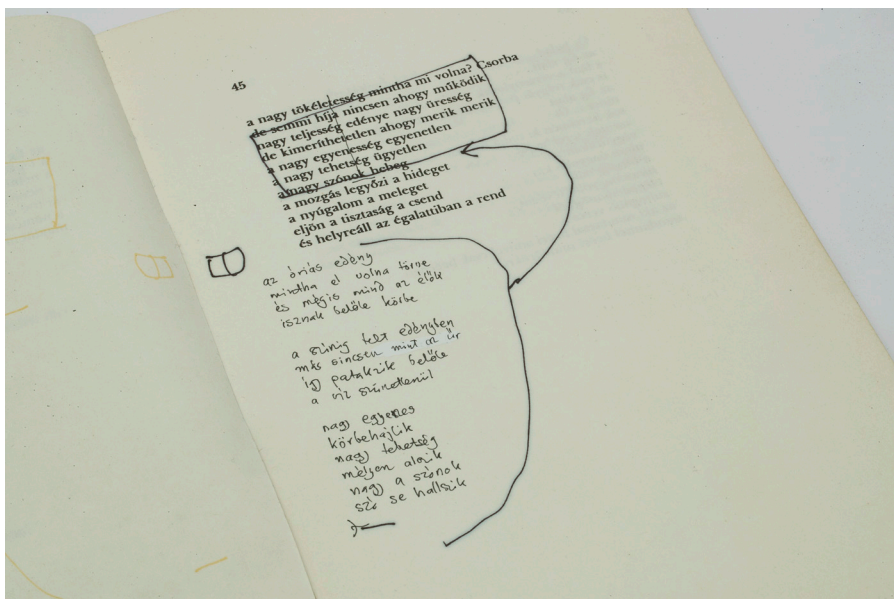 45
a nagy tökéletesség mintha mi volna? Csorba
de semmi híja nincsen ahogy működik
nagy teljesség edénye nagy üresség
de kimeríthetetlen ahogy merik merik
a nagy egyenesség egyenetlen
a nagy tehetség ügyetlen
a nagy szónok hebeg
a mozgás legyőzi a hideget
a nyúgalom a meleget
eljön a tisztaság a csend
és helyreáll az égalattiban a rend
az óriás edény
mintha el volna törne
és mégis mind az élők
isznak belőle körbe
a színig telt edényben
más sincsen mint az űr
így patakzik belőle
a víz szünetlenül
nagy egyenes
körbehajlik
nagy tehetség
mélyen alszik
nagy a szónok
szó se hallszik